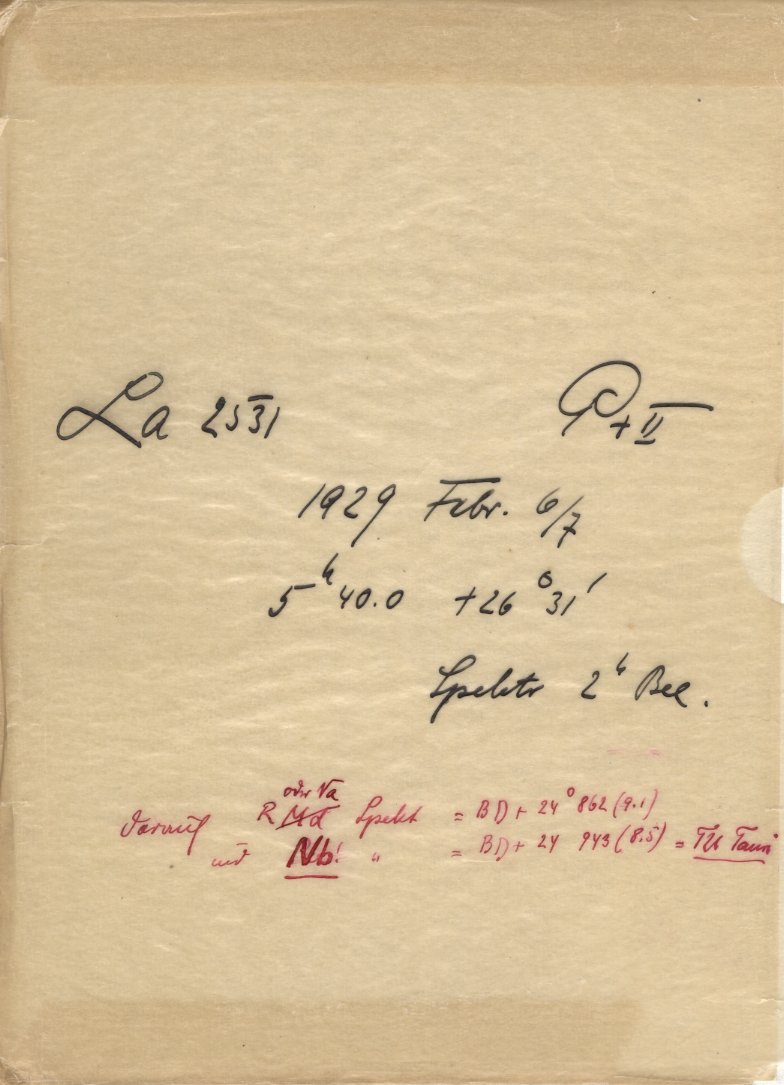 La 2531 P+II
1929 Febr. 6/7
5h 40.0 +26° 31'
Spektr 2h Bel.
oder Na
darauf R Md Spekt = BD+24° 862 (9.1)
und Nb! " = BD+24 943 (8.5) = TU Tauri